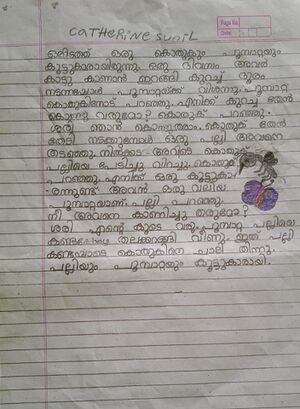 CATHERINE SUNIL
Page No.
Date
ഒരിടത്ത് ഒരു കൊതുകും പൂമ്പാറ്റയും
കൂട്ടുകാരായിരുന്നു. ഒരു ദിവസം അവർ
കാട്ടു കാണാൻ ഇറങ്ങി കുറച്ച് ദൂരം
നടന്നപ്പോൾ പൂമ്പാറ്റയ്ക്ക് വിശന്നു. പൂമ്പാറ്റ
കൊതുകിനോട് പറഞ്ഞു. എനിക്ക് കുറച്ച് തേൻ
കൊണ്ടു വരുമോ? കൊതുക് പറഞ്ഞു.
ശരി ഞാൻ കൊണ്ടുത്തരാം. കൊതുക് തേൻ
തേടി നടക്കുമ്പോൾ ഒരു പല്ലി അവനെ
തടഞ്ഞു നിൽക്കടാ അവിടെ കൊതുക്
പല്ലിയെ പേടിച്ചു വിറച്ചു. കൊതുക്
പറഞ്ഞു. എനിക്ക് ഒരു കൂട്ടുകാ-
രന്നുണ്ട് അവൻ ഒരു വലിയ
പൂമ്പാറ്റയാണ്. പല്ലി പറഞ്ഞു.
നീ അവനെ കാണിച്ചു തരുമോ?
ശരി എന്റെ കൂടെ വരൂ. പൂമ്പാറ്റ പല്ലിയെ
തലകറങ്ങി വീണു. ഇത് പല്ലി
കണ്ടപ്പോടെ കൊതുകിനെ ചാലി തിന്നു.
പല്ലിയും പൂമ്പാറ്റയും കൂട്ടുകാരായി.